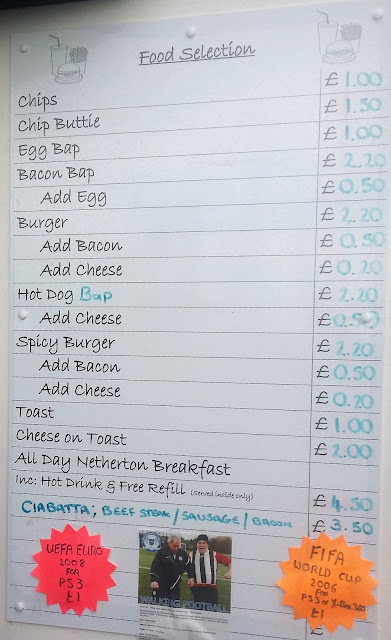 Food Selection
Chips £ 1.00
Chip Buttie £ 1.50
Egg Bap £ 1.00
Bacon Bap £ 2.20
Add Egg £ 0.50
Burger £ 2.20
Add Bacon £ 0.50
Add Cheese £ 0.20
Hot Dog Bap £ 2.20
Add Cheese £ 0.50
Spicy Burger £ 2.20
Add Bacon £ 0.50
Add Cheese £ 0.20
Toast £ 1.00
Cheese on Toast £ 2.00
All Day Netherton Breakfast
Inc: Hot Drink & Free Refill (Served inside only) £ 4.50
CIABATTA; BEEF STEAK / SAUSAGE / BACON £ 3.50
UEFA EURO
2008
FOR
PS3
£1
WALKING FOOTBALL
FIFA
WORLD CUP
2006
FOR
PS3 or X-Box 360
£1